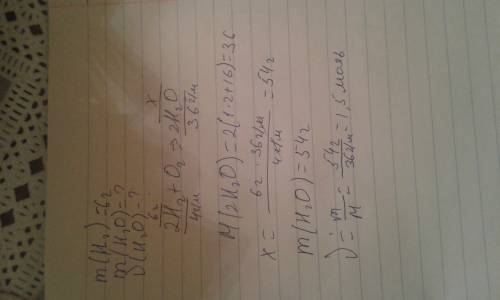 m(H₂)=6г
m(H₂O)=?
ν(H₂O)=?
6г x
2H₂+O₂→2H₂O
4г/м 36г/м
M(2H₂O)=2(1·2+16)=36
x= 6г·36г/м / 4г/м =54г
m(H₂O)=54г
ν= m/M = 54г/36г/м =1,5 моль